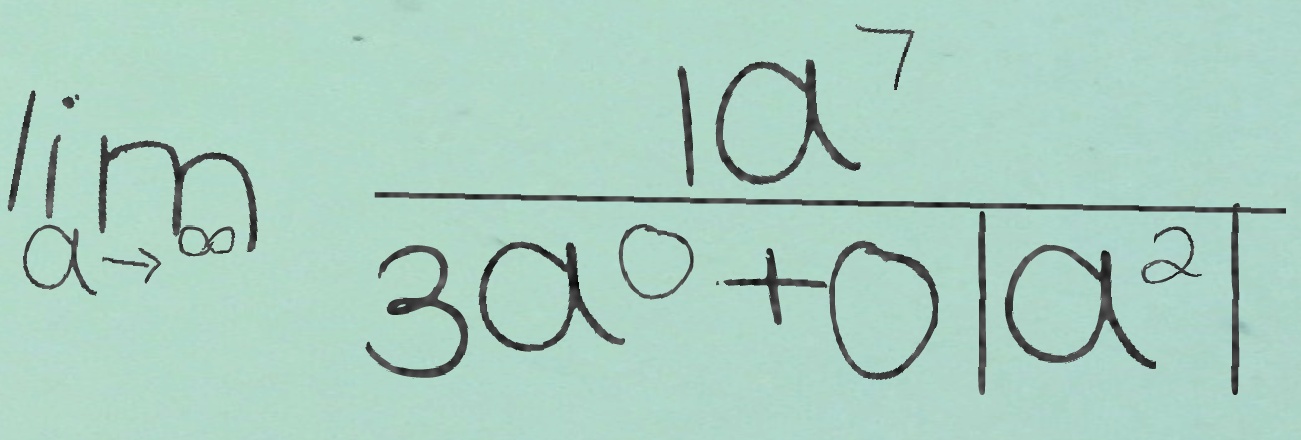 \lim_{a \to \infty} \frac{1a^7}{3a^0 + 0|a^2|}